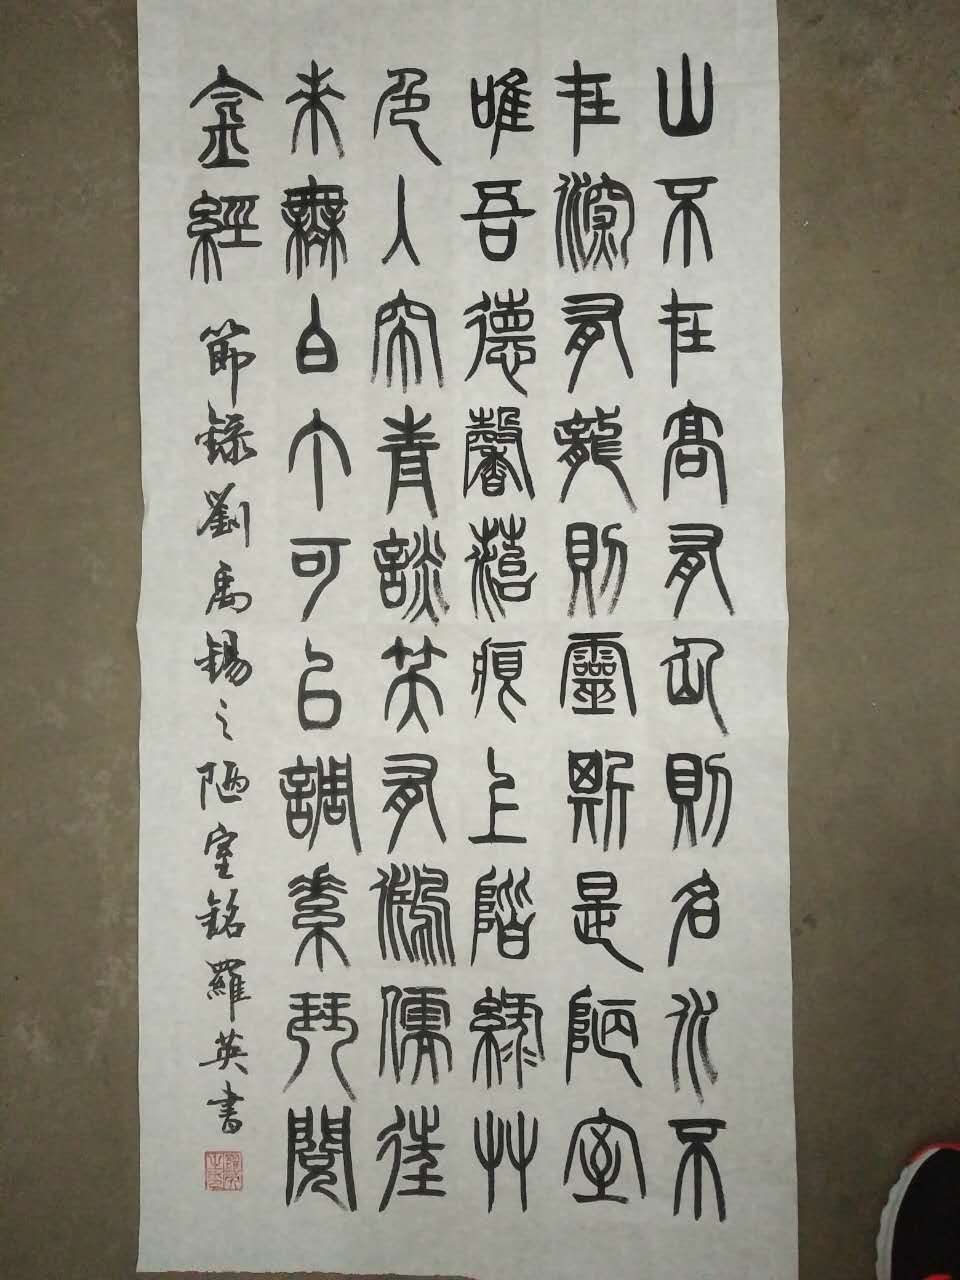 山不在高有仙則名水不
在深有龍則靈斯是陋室
唯吾德馨菭痕上階綠艸
色入帘青談笑有鴻儒往
來無白丁可以調素琴閱
金經 節錄劉禹錫之陋室銘羅英書